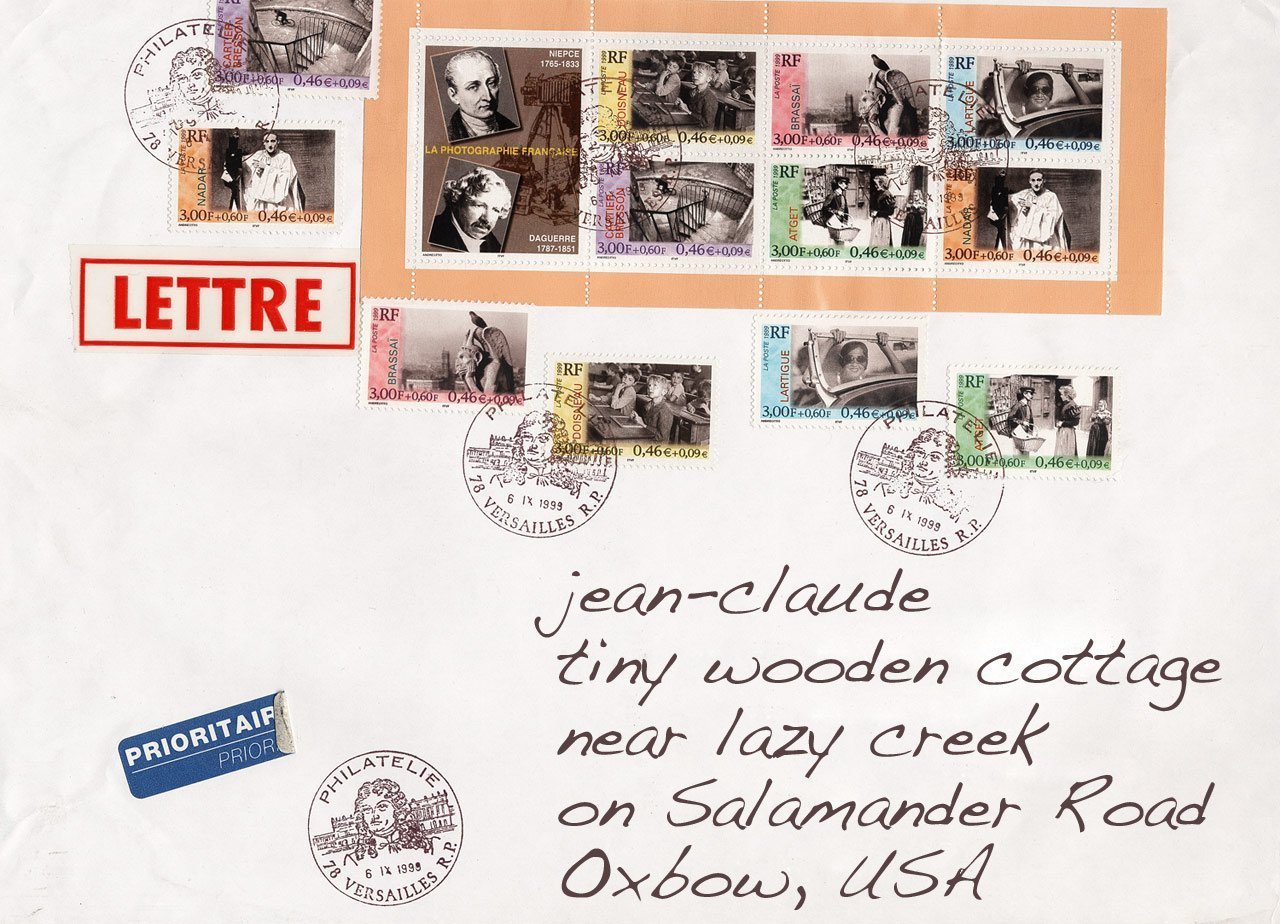 PHILATELIE
78 VERSAILLES
CARTIER
BRESSON
3,00F+0,60F 0,46€+0,09€
RF
NADAR
3,00F+0,60F 0,46€+0,09€
NIEPCE
1765-1833
LA PHOTOGRAPHIE FRANÇAISE
DAGUERRE
1787-1851
RF
LA POSTE 1999
DOISNEAU
3,00F+0,60F 0,46€+0,09€
RF
LA POSTE 1999
BRASSAÏ
3,00F+0,60F 0,46€+0,09€
RF
LA POSTE 1999
LARTIGUE
3,00F+0,60F 0,46€+0,09€
RF
CARTIER
BRESSON
3,00F+0,60F 0,46€+0,09€
RF
LA POSTE 1999
ATGET
3,00F+0,60F 0,46€+0,09€
RF
NADAR
3,00F+0,60F 0,46€+0,09€
LETTRE
RF
LA POSTE 1999
BRASSAÏ
3,00F+0,60F 0,46€+0,09€
RF
DOISNEAU
3,00F+0,60F 0,46€+0,09€
RF
LA POSTE 1999
LARTIGUE
3,00F+0,60F 0,46€+0,09€
RF
ATGET
3,00F+0,60F 0,46€+0,09€
PHILATELIE
6 IX 1999
78 VERSAILLES R.P.
PHILATELIE
6 IX 1999
78 VERSAILLES R.P.
jean-claude
tiny wooden cottage
near lazy creek
on Salamander Road
Oxbow, USA
PRIORITAIR
PRIOR
PHILATELIE
6 IX 1999
78 VERSAILLES R.P.